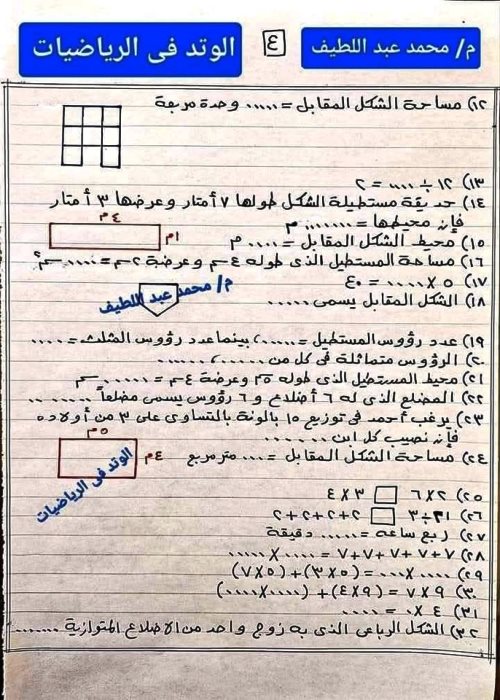 م/ محمد عبد اللطيف
٤
الوتد فى الرياضيات
١٢) مساحة الشكل المقابل = ..... وحدة مربعة
١٣) ١٢ ÷ .... = ٢
١٤) حديقة مستطيلة الشكل طولها ٧ أمتار وعرضها ٣ أمتار
فإن محيطها = ....... م
٤م
١م
١٥) محيط الشكل المقابل = .... م
١٦) مساحة المستطيل الذى طوله ٤سم وعرضة ٢سم = ..... سم٢
١٧) ٥ X .... = ٤٠
١٨) الشكل المقابل يسمى .....
م/ محمد عبد اللطيف
١٩) عدد رؤوس المستطيل = ..... ، بينما عدد رؤوس المثلث = ....
٢٠) الرؤوس متماثلة فى كل من ..... ، ......
٢١) محيط المستطيل الذى طوله ٥سم وعرضة ٤سم = ...... سم
٢٢) المضلع الذى له ٦ أضلاع و ٦ رؤوس يسمى مضلعاً .......
٢٣) يرغب أحمد فى توزيع ١٥ بالونة بالتساوى على ٣ من أولاده
فإن نصيب كل ابن ......
٥م
٤م
٢٤) مساحة الشكل المقابل = .... متر مربع
الوتد فى الرياضيات
٢٥) ٢ X ٦ □ ٣ X ٤
٢٦) ٢١ ÷ ٣ □ ٢+٢+٢+٢
٢٧) ربع ساعه = ...... دقيقة
٢٨) ٧+٧+٧+٧ = .... X .....
٢٩) .... X .... = (٥ X ٣) + (٥ X ٧)
٣٠) ٩ X ٧ = (٩ X ٤) + (.... X ....)
٣١) ٤ X ٠ = ....
٣٢) الشكل الرباعى الذى به زوج واحد من الاضلاع المتوازية .......